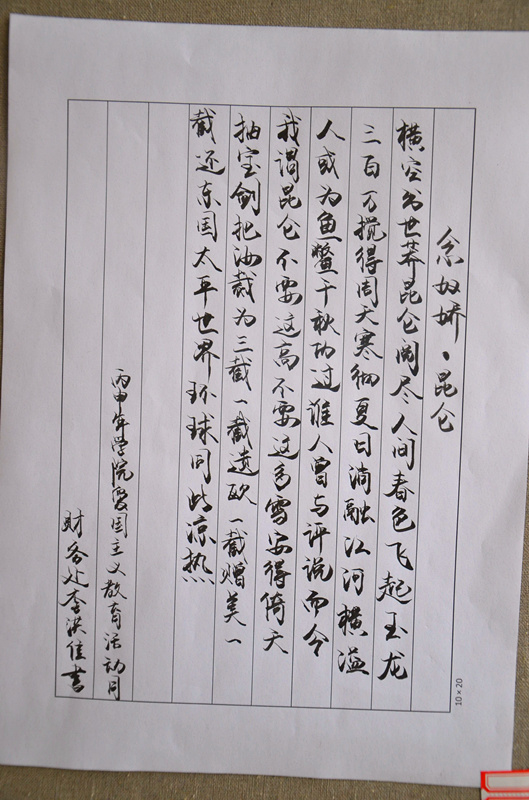 念奴娇·昆仑
横空出世莽昆仑阅尽人间春色飞起玉龙
三百万搅得周天寒彻夏日消融江河横溢
人或为鱼鳖千秋功过谁人曾与评说而今
我谓昆仑不要这高不要这多雪安得倚天
抽宝剑把汝裁为三截一截遗欧一截赠美一
截还东国太平世界环球同此凉热
丙申年学院爱国主义教育活动月
财务处李洪佳书
10×20